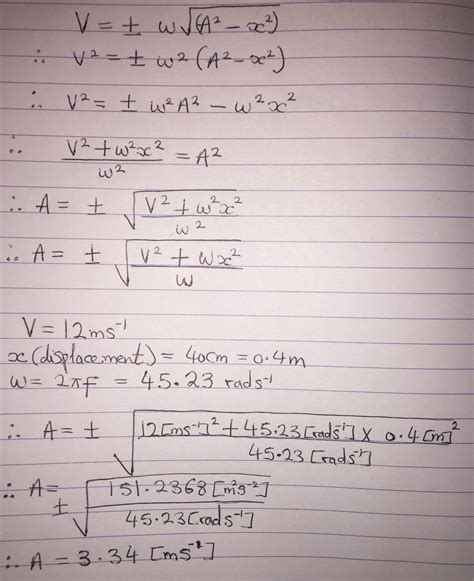 V = ± ω√(A² − x²)
∴ V² = ± ω² (A² − x²)
∴ V² = ± ω²A² − ω²x²
∴ (V² + ω²x²)/ω² = A²
∴ A = ± √((V² + ω²x²)/ω²)
∴ A = ± √((V² + ωx²)/ω)
V = 12ms⁻¹
x (displacement) = 40cm = 0.4m
ω = 2πf = 45.23 rads⁻¹
∴ A = ± √((12[ms⁻¹]² + 45.23[rads⁻¹] × 0.4[m]²)/45.23[rads⁻¹])
∴ A = ± √(151.2368[m²s⁻²]/45.23[rads⁻¹])
∴ A = 3.34 [ms⁻²]